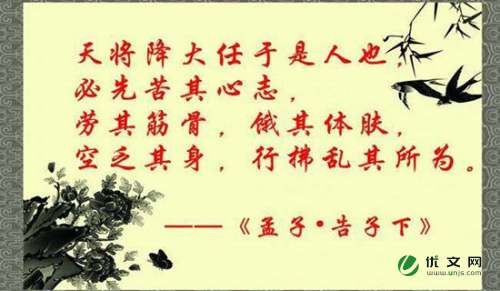 天将降大任于是人也，
必先苦其心志，
劳其筋骨，饿其体肤，
空乏其身，行拂乱其所为。
——《孟子•告子下》
优文网
www.unjs.com